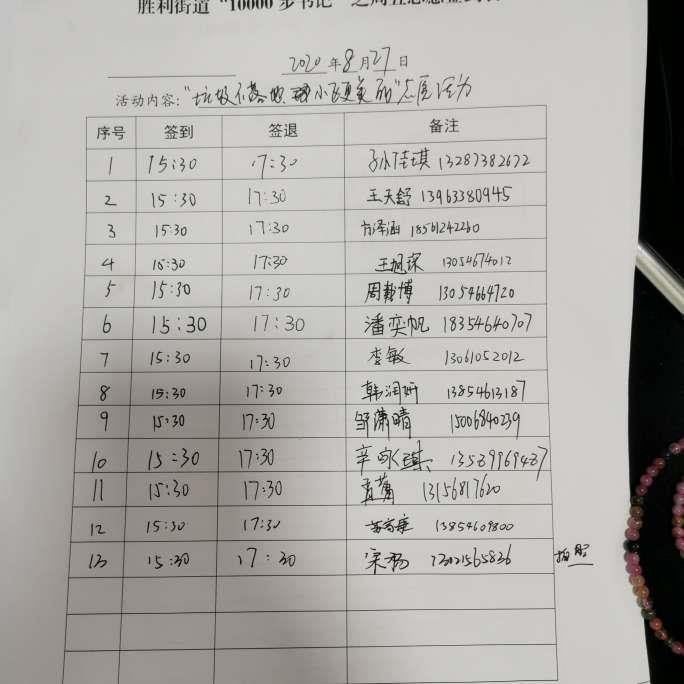 胜利街道“10000步书记”之周五志愿签到表
2020年8月27日
活动内容:“垃圾不落地 小区更美丽”志愿活动
序号 签到 签退 备注
1 15:30 17:30 孙佳琪 13287382672
2 15:30 17:30 王天舒 13963380945
3 15:30 17:30 方泽涵 18561242260
4 15:30 17:30 王旭琛 13054674012
5 15:30 17:30 周 博 13054664720
6 15:30 17:30 潘奕帆 18354640707
7 15:30 17:30 李敏 13061052012
8 15:30 17:30 韩润妍 13854613187
9 15:30 17:30 邹潇晴 15006840239
10 15:30 17:30 辛咏琪 13589969487
11 15:30 17:30 13156817620
12 15:30 17:30 13854609800
13 15:30 17:30 宋杨 13021565836 拍照